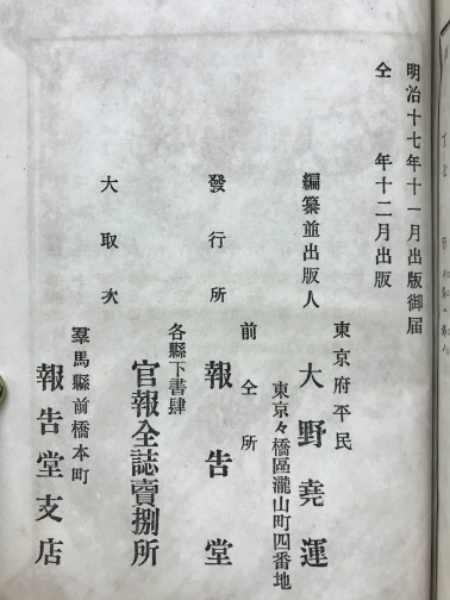 明治十七年十一月出版御届
仝　年十二月出版
東京府平民
編纂並出版人　大野堯運
東京々橋區瀧山町四番地
前仝所
發行所　報告堂
各縣下書肆
大取次　官報全誌賣捌所
羣馬縣前橋本町
報告堂支店